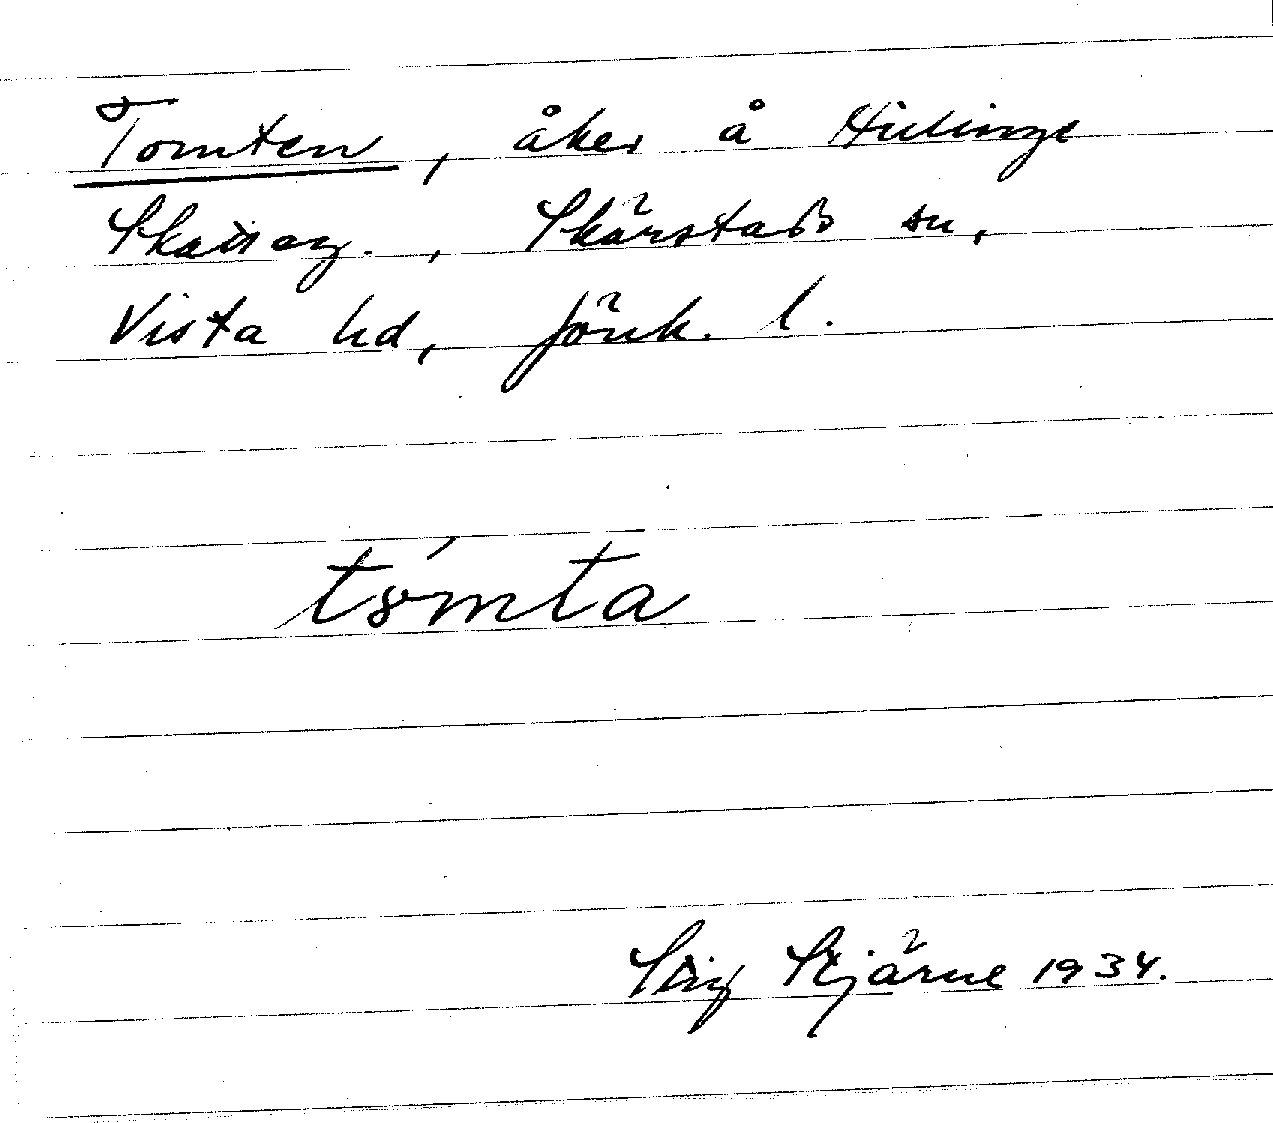 Tomten, åker å Hulinge
Skatteg., Skärstads sn,
Vista hd, Jönk. l.
tómta
Stig Stjärne 1934.